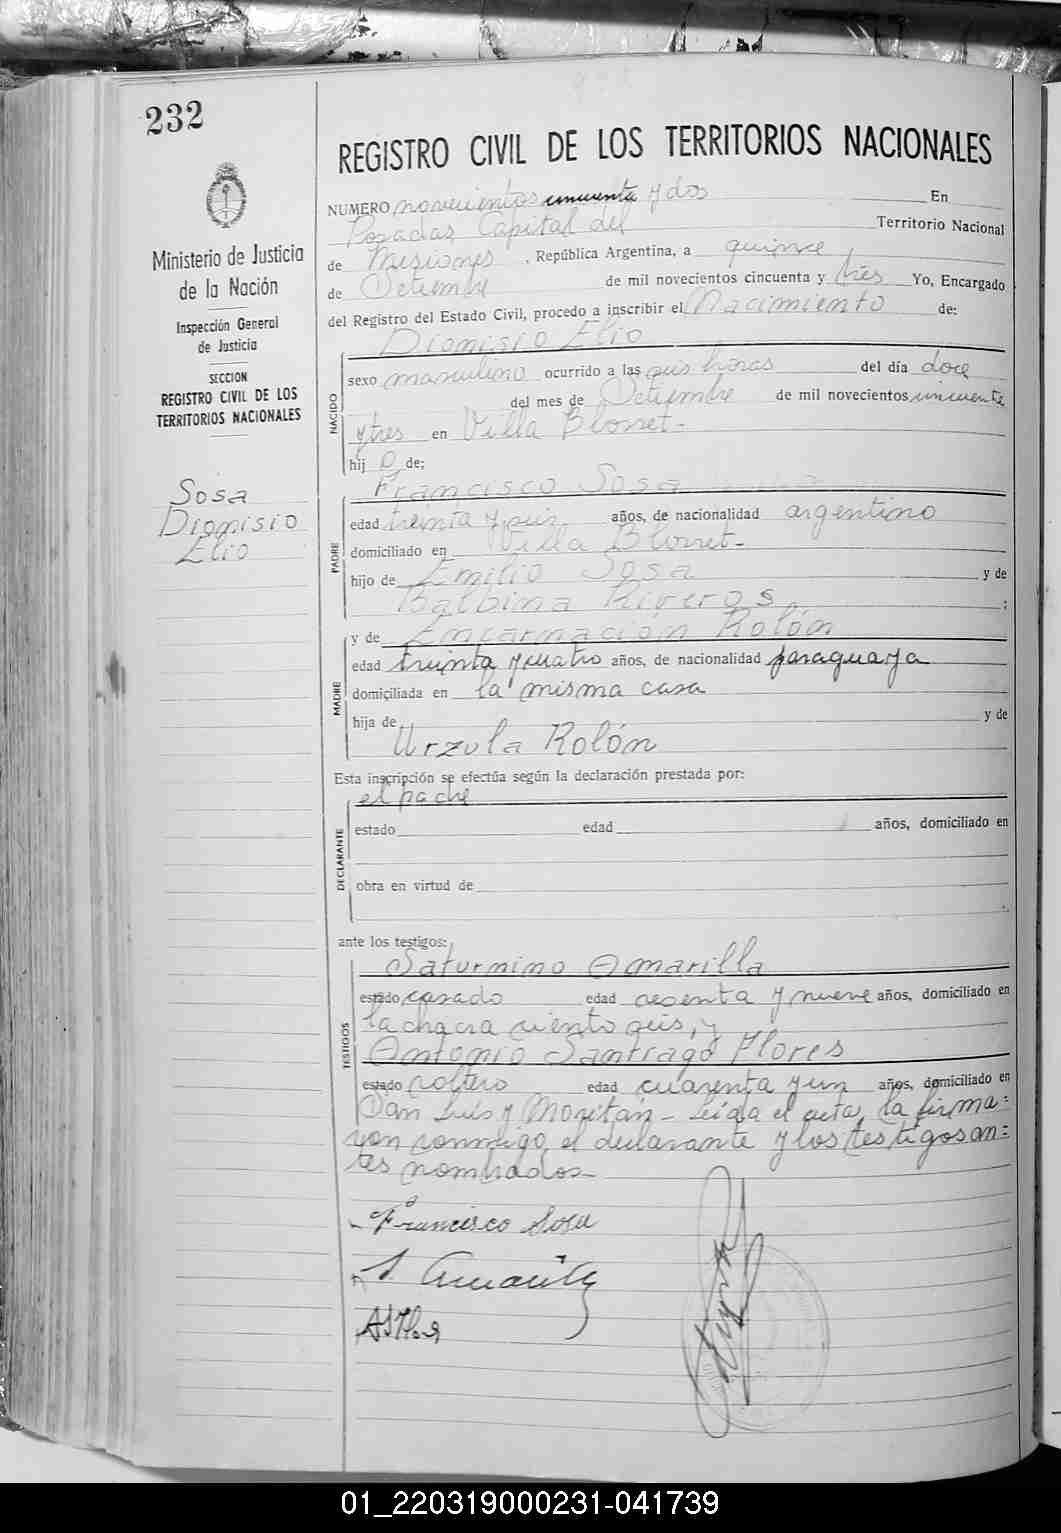 232
REGISTRO CIVIL DE LOS TERRITORIOS NACIONALES
Ministerio de Justicia
de la Nación
Inspección General
de Justicia
SECCION
REGISTRO CIVIL DE LOS
TERRITORIOS NACIONALES
Sosa
Dionisio
Elio
NUMERO novecientos cincuenta y dos En
Posadas, Capital del Territorio Nacional
de Misiones, República Argentina, a quince
de Setiembre de mil novecientos cincuenta y tres Yo, Encargado
del Registro del Estado Civil, procedo a inscribir el Nacimiento de:
NACIDO
Dionisio Elio
sexo masculino ocurrido a las seis horas del día doce
del mes de Setiembre de mil novecientos cincuenta
y tres en Villa Blosset-
hij o de:
PADRE
Francisco Sosa
edad treinta y seis años, de nacionalidad argentino
domiciliado en Villa Blosset-
hijo de Emilio Sosa y de
Balbina Riveros ;
MADRE
y de Encarnación Rolón
edad treinta y cuatro años, de nacionalidad paraguaya
domiciliada en la misma casa
hija de y de
Urzula Rolón
Esta inscripción se efectúa según la declaración prestada por:
DECLARANTE
el padre
estado edad años, domiciliado en
obra en virtud de
ante los testigos:
TESTIGOS
Saturnino Amarilla
estado casado edad sesenta y nueve años, domiciliado en
la chacra ciento seis, y
Antonio Santiago Flores
estado soltero edad cuarenta y un años, domiciliado en
San Luis y Moritán- Leída el acta, la firma=
ron conmigo, el declarante y los testigos an=
tes nombrados-
Francisco Sosa
S. Amarilla
ASFlores
01_220319000231-041739